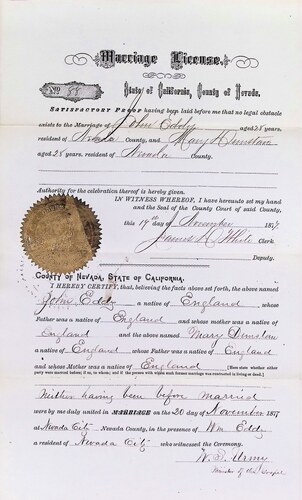 Marriage License.
No 88
State of California, County of Nevada.
SATISFACTORY PROOF having been laid before me that no legal obstacle
exists to the Marriage of John Eddy aged 28 years,
resident of Nevada County, and Mary Dunstan
aged 28 years, resident of Nevada county.
Authority for the celebration thereof is hereby given.
IN WITNESS WHEREOF, I have hereunto set my hand
and the Seal of the County Court of said County,
this 19th day of November 1877
James D. White Clerk.
Deputy.
COUNTY OF NEVADA, STATE OF CALIFORNIA.
I HEREBY CERTIFY, that, believing the facts above set forth, the above named
John Eddy a native of England, whose
Father was a native of England and whose mother was a native of
England and the above named Mary Dunstan
a native of England whose Father was a native of England
and whose Mother was a native of England [Here state whether either
party were married before; if so, to whom; and if the person with whom such former marriage was contracted is living or dead.]
Neither having been before married
were by me duly united in MARRIAGE on the 20 day of November 1877
at Nevada City Nevada County, in the presence of Wm Eddy
a resident of Nevada City who witnessed the Ceremony.
W. S. Urmy
Minister of the Gospel